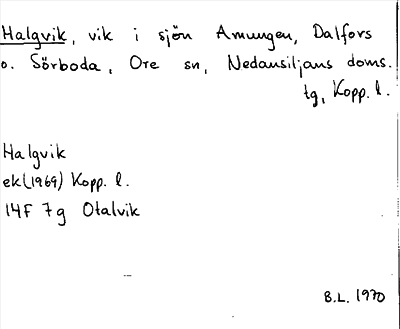 Halgvik, vik i sjön Amungen, Dalfors
o. Sörboda, Ore sn, Nedansiljans doms.
tg, Kopp. l.
Halgvik
ek (1969) Kopp. l.
14F 7g Otalvik
B.L. 1970